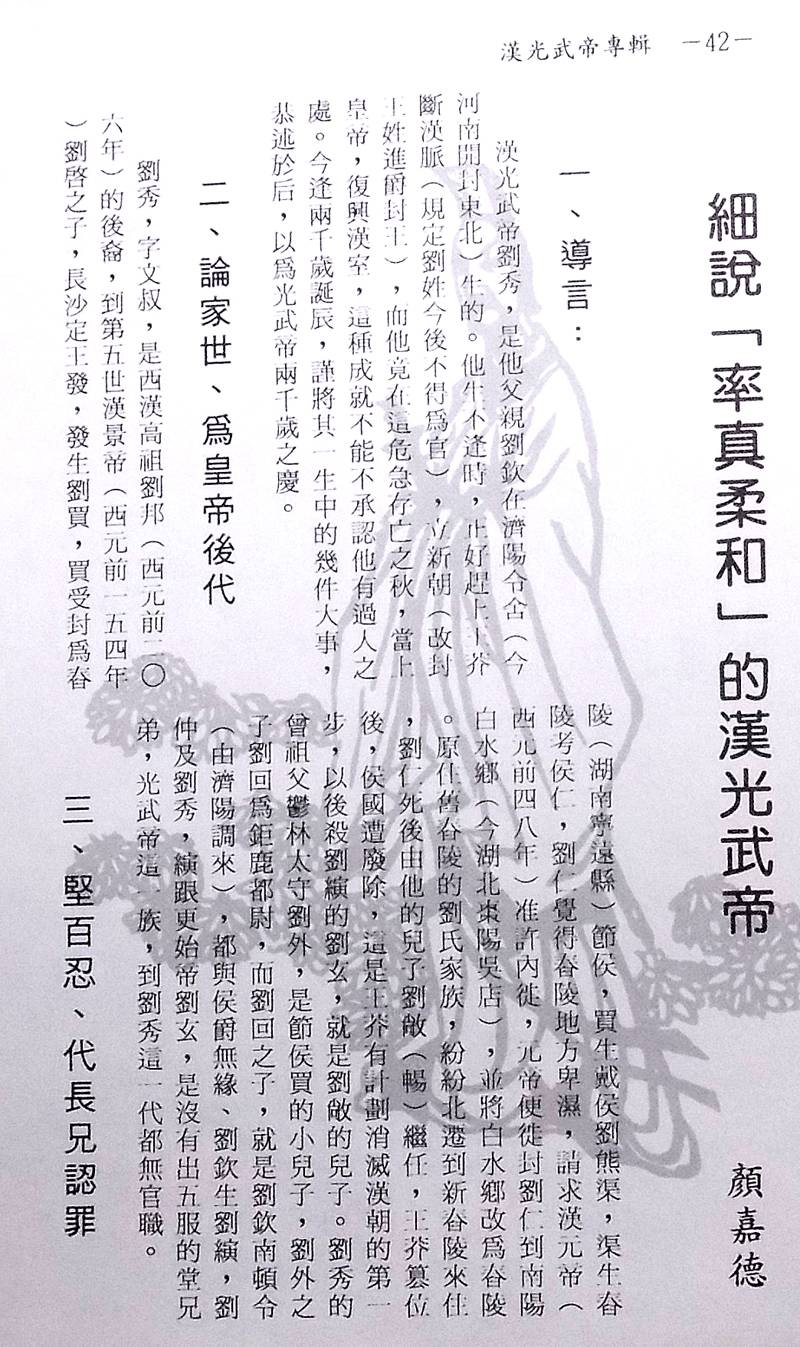 漢光武帝專輯　－42－
細說「率真柔和」的漢光武帝
顏嘉德
一、導言：
漢光武帝劉秀，是他父親劉欽在濟陽令舍（今
河南開封東北）生的。他生不逢時，正好趕上王莽
斷漢脈（規定劉姓今後不得為官），立新朝（改封
王姓進爵封王），而他竟在這危急存亡之秋，當上
皇帝，復興漢室，這種成就不能不承認他有過人之
處。今逢兩千歲誕辰，謹將其一生中的幾件大事，
恭述於后，以為光武帝兩千歲之慶。
二、論家世、為皇帝後代
劉秀，字文叔，是西漢高祖劉邦（西元前二〇
六年）的後裔，到第五世漢景帝（西元前一五四年
）劉啓之子，長沙定王發，發生劉買，買受封為舂
陵（湖南寧遠縣）節侯，買生戴侯劉熊渠，渠生舂
陵考侯仁，劉仁覺得舂陵地方卑濕，請求漢元帝（
西元前四八年）准許內徙，元帝便徙封劉仁到南陽
白水鄉（今湖北棗陽吳店），並將白水鄉改為舂陵
。原住舊舂陵的劉氏家族，紛紛北遷到新舂陵來住
，劉仁死後由他的兒子劉敞（暢）繼任，王莽篡位
後，侯國遭廢除，這是王莽有計劃消滅漢朝的第一
步，以後殺劉縯的劉玄，就是劉敞的兒子。劉秀的
曾祖父鬱林太守劉外，是節侯買的小兒子，劉外之
子劉回為鉅鹿都尉，而劉回之子，就是劉欽南頓令
（由濟陽調來），都與侯爵無緣、劉欽生劉縯，劉
仲及劉秀，縯跟更始帝劉玄，是沒有出五服的堂兄
弟，光武帝這一族，到劉秀這一代都無官職。
三、堅百忍、代長兄認罪